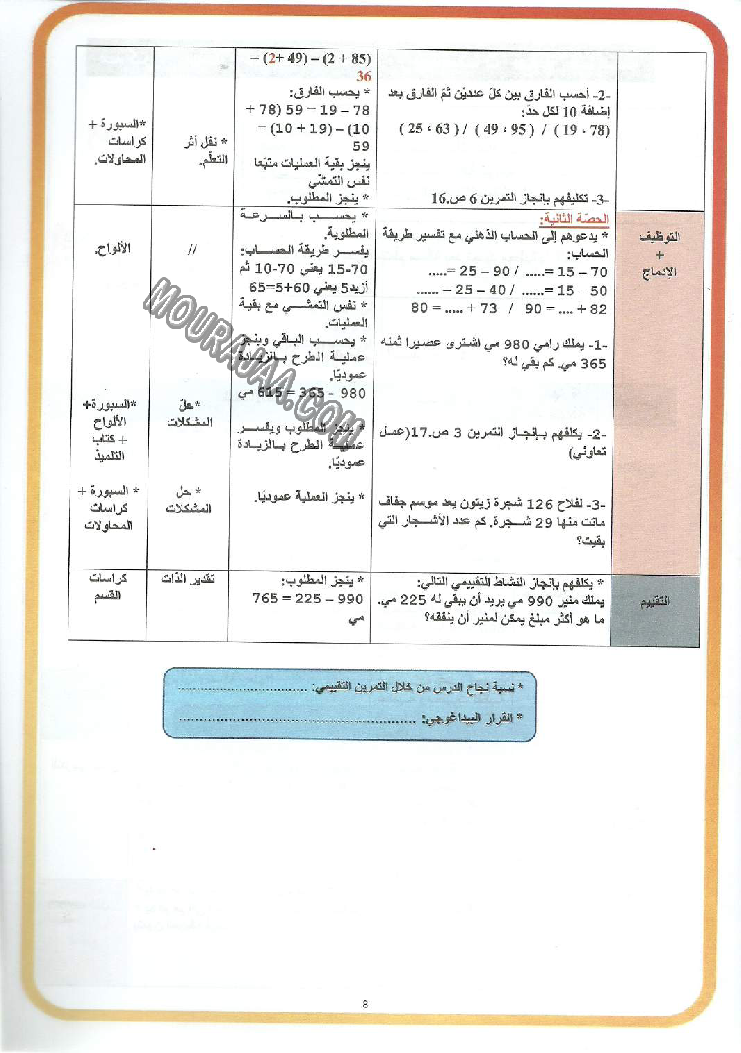 (85 + 2) – (49 +2) –
36
-2- أحسب الفارق بين كلّ عدديْن ثمّ الفارق بعد
إضافة 10 لكل حدّ:
(78 ، 19) / (95 ، 49) / (63 ، 25)
-3- تكليفهم بإنجاز التمرين 6 ص.16
* يحسب الفارق:
78 – 19 = 59 (78 +
10) – (19 + 10) =
59
ينجز بقية العمليات متبّعا
نفس التمشّي
* ينجز المطلوب.
* نقل أثر
التعلّم.
*السبورة +
كراسات
المحاولات.
التوظيف
+
الادماج
الحصّة الثانية:
* يدعوهم إلى الحساب الذهني مع تفسير طريقة
الحساب:
70 – 15 =..... / 90 – 25 =.....
50 15 =...... / 40 – 25 – ......
82 + .... = 90 / 73 + ..... = 80
-1- يملك رامي 980 مي اشترى عصيرا ثمنه
365 مي. كم بقي له؟
-2- يكلفهم بإنجاز التمرين 3 ص.17(عمل
تعاوني)
-3- لفلاح 126 شجرة زيتون بعد موسم جفاف
ماتت منها 29 شجرة. كم عدد الأشجار التي
بقيت؟
* يحسب بالسرعة
المطلوبة.
يفسر طريقة الحساب:
70-15 يعني 70-10 ثم
أزيد5 يعني 60+5=65
* نفس التمشي مع بقية
العمليات.
* يحسب الباقي وينجز
عملية الطرح بالزيادة
عموديّا.
980 – 365 = 615 مي
* ينجز المطلوب ويفسر
عملية الطرح بالزيادة
عموديّا.
* ينجز العملية عموديّا.
//
* حلّ
المشكلات
* حل
المشكلات
الألواح.
*السبورة+
الألواح
+ كتاب
التلميذ
* السبورة +
كراسات
المحاولات
التقييم
* يكلفهم بإنجاز النشاط التقييمي التالي:
يملك منير 990 مي يريد أن يبقى له 225 مي.
ما هو أكثر مبلغ يمكن لمنير أن ينفقه؟
* ينجز المطلوب:
990 – 225 = 765
مي
تقدير الذات
كراسات
القسم
* نسبة نجاح الدرس من خلال التمرين التقييمي: ................................
* القرار البيداغوجي: ............................................................
MOURAJAA.COM
8